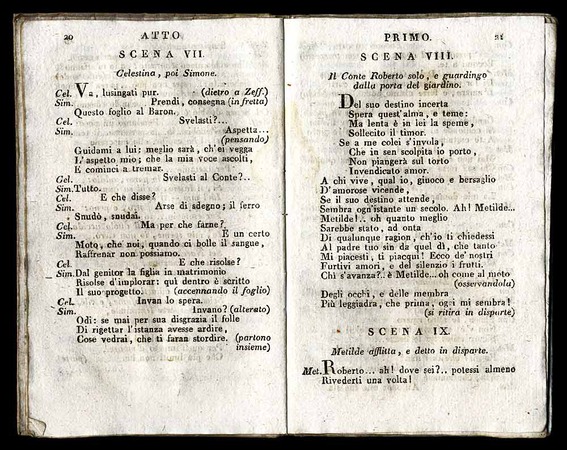 20
ATTO
SCENA VII.
Celestina, poi Simone.
Cel. Va, lusingati pur. (dietro a Zeff.)
Sim. Prendi, consegna (in fretta)
Questo foglio al Baron.
Cel. Svelasti?...
Sim. Aspetta...
(pensando)
Guidami a lui: meglio sarà, ch'ei vegga
L'aspetto mio; che la mia voce ascolti,
E cominci a tremar.
Cel. Svelasti al Conte?..
Sim. Tutto.
Cel. E che disse?
Sim. Arse di sdegno; il ferro
Snudò, snudai.
Cel. Ma per che farne?
Sim. E un certo
Moto, che noi, quando ci bolle il sangue,
Raffrenar non possiamo.
Cel. E che risolse?
Sim. Dal genitor la figlia in matrimonio
Risolse d'implorar: quì dentro è scritto
Il suo progetto. (accennando il foglio)
Cel. Invan lo spera.
Sim. Invano? (alterato)
Odi: se mai per sua disgrazia il folle
Di rigettar l'istanza avesse ardire,
Cose vedrai, che ti faran stordire. (partono
insieme)
PRIMO.
21
SCENA VIII.
Il Conte Roberto solo, e guardingo
dalla porta del giardino.
Del suo destino incerta
Spera quest'alma, e teme:
Ma lenta è in lei la speme,
Sollecito il timor.
Se a me colei s'invola,
Che in sen scolpita io porto,
Non piangerà sul torto
Invendicato amor.
A chi vive, qual io, giuoco e bersaglio
D'amorose vicende,
Se il suo destino attende,
Sembra ogn'istante un secolo. Ah! Metilde...
Metilde!.. oh quanto meglio
Sarebbe stato, ad onta
Di qualunque ragion, ch'io ti chiedessi
Al padre tuo sin da quel dì, che tanto
Mi piacesti, ti piacqui! Ecco de' nostri
Furtivi amori, e del silenzio i frutti.
Chi s'avanza?.. è Metilde... oh come al moto
(osservandola)
Degli occhi, e delle membra
Più leggiadra, che prima, ogni mi sembra!
(si ritira in disparte)
SCENA IX.
Metilde afflitta, e detto in disparte.
Met. Roberto... ah! dove sei?.. potessi almeno
Rivederti una volta!